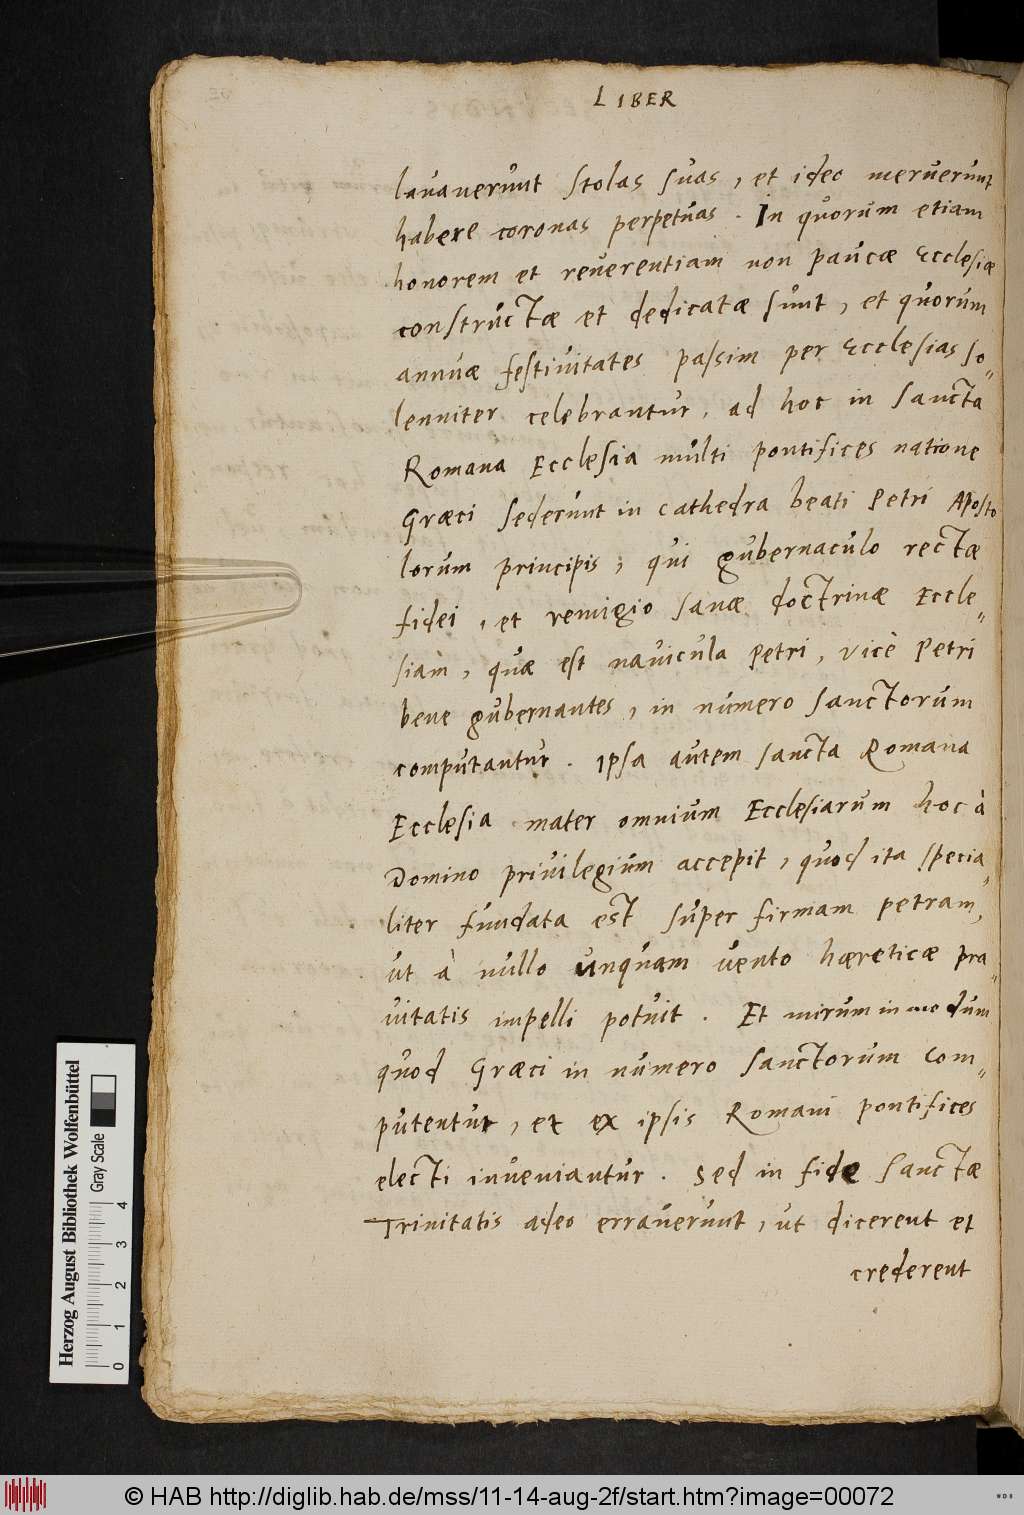 LIBER
lavaverunt stolas suas, et ideo meruerunt
habere coronas perpetuas. In quorum etiam
honorem et reverentiam non paucæ Ecclesiæ
constructæ et dedicatæ sunt, et quorum
annuæ festivitates passim per Ecclesias so„
lenniter celebrantur, ad hoc in Sancta
Romana Ecclesia multi pontifices natione
Græci sederunt in cathedra beati Petri Aposto
lorum principis, qui gubernaculo rectæ
fidei, et remigio sanæ doctrinæ Eccle„
siam, quæ est navicula Petri, vicè Petri
bene gubernantes, in numero Sanctorum
computantur. Ipsa autem sancta Romana
Ecclesia mater omnium Ecclesiarum hoc à
Domino privilegium accepit, quod ita specia„
liter fundata est super firmam petram,
ut à nullo unquam vento hæreticæ pra„
vitatis impelli potuit. Et mirum in modum
quod Græci in numero Sanctorum com„
putentur, et ex ipsis Romani pontifices
electi inveniantur. Sed in fide Sanctæ
Trinitatis adeo erraverunt, ut dicerent et
crederent
Herzog August Bibliothek Wolfenbüttel
Gray Scale
0 1 2 3 4
© HAB http://diglib.hab.de/mss/11-14-aug-2f/start.htm?image=00072